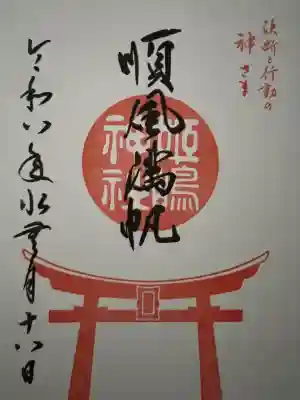 決断と行動の
神さま
順風満帆
鳥
神社
令和八年水無月十八日